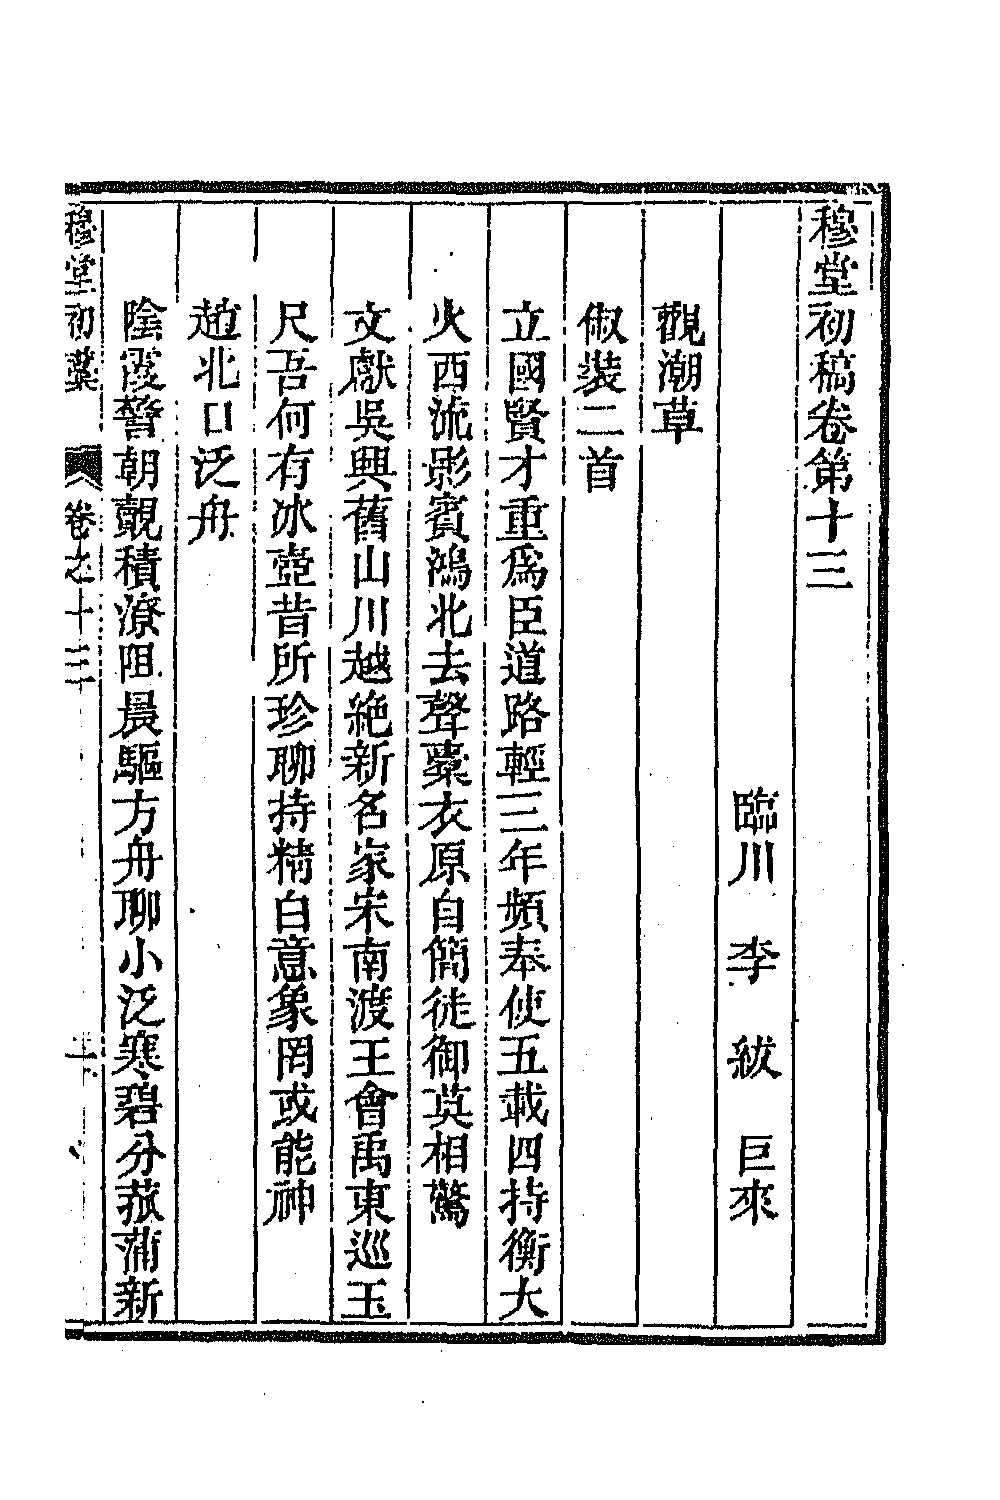 穆堂初稿卷第十三
臨川 李 紱 巨來
觀潮草
俶裝二首
立國賢才重爲臣道路輕三年頻奉使五載四持衡大
火西流影賓鴻北去聲櫜衣原自簡徒御莫相驚
文獻吳興舊山川越絶新名家宋南渡王會禹東巡玉
尺吾何有冰壺昔所珍聊持精白意象罔或能神
趙北口泛舟
陰霞警朝覯積潦阻晨驅方舟聊小泛寒碧分菰蒲新
穆堂初藁 卷之十三 一